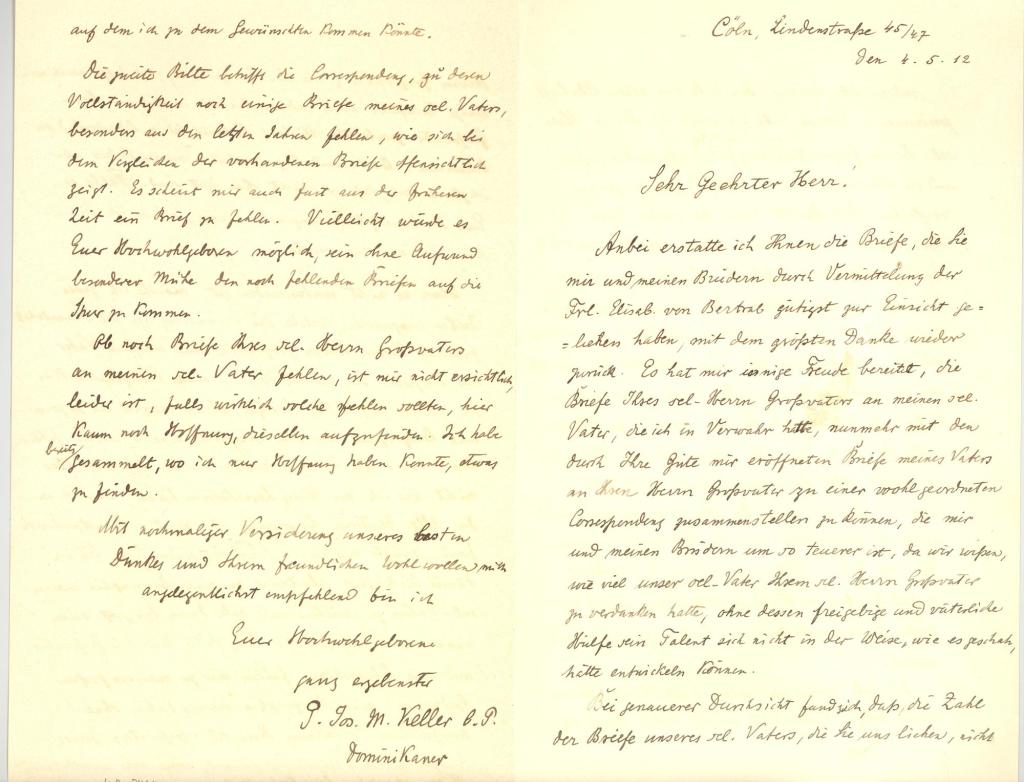 Cöln, Lindenstraße 45/47
den 4. 5. 12
Sehr Geehrter Herr!
Anbei erstatte ich Ihnen die Briefe, die Sie
mir und meinen Brüdern durch Vermittelung der
Frl. Elisab. von Bertrab gütigst zur Einsicht ge=
=liehen haben, mit dem größten Danke wieder
zurück. Es hat mir innige Freude bereitet, die
Briefe Ihres sel. Herrn Großvaters an meinen sel.
Vater, die ich in Verwahr hatte, nunmehr mit den
durch Ihre Güte mir eröffneten Briefe meines Vaters
an Ihren Herrn Großvater zu einer wohlgeordneten
Correspondenz zusammenstellen zu können, die mir
und meinen Brüdern um so teuerer ist, da wir wißen,
wie viel unser sel. Vater Ihrem sel. Herrn Großvater
zu verdanken hatte, ohne dessen freigebige und väterliche
Hülfe sein Talent sich nicht in der Weise, wie es geschah,
hätte entwickeln können.
Bei genauerer Durchsicht fand sich, daß die Zahl
der Briefe unseres sel. Vaters, die Sie uns liehen, nicht
auf dem ich zu dem Gewünschten kommen könnte.
Die zweite Bitte betrifft die Correspondenz, zu deren
Vollständigkeit noch einige Briefe meines sel. Vaters,
besonders aus den letzten Jahren fehlen, wie sich bei
dem Vergleichen der vorhandenen Briefe offensichtlich
zeigt. Es scheint mir auch fast aus der früheren
Zeit ein Brief zu fehlen. Vielleicht würde es
Euer Hochwohlgeboren möglich sein ohne Aufwand
besonderer Mühe den noch fehlenden Briefen auf die
Spur zu kommen.
Ob noch Briefe Ihres sel. Herrn Großvaters
an meinen sel. Vater fehlen, ist mir nicht ersichtlich,
leider ist, falls wirklich solche fehlen sollten, hier
kaum noch Hoffnung, dieselben aufzufinden. Ich habe
bereits gesammelt, wo ich nur Hoffnung haben konnte, etwas
zu finden.
Mit nochmaliger Versicherung unseres besten
Dankes und Ihrem freundlichen Wohlwollen mich
angelegentlichst empfehlend bin ich
Euer Hochwohlgeborene
ganz ergebenster
P. Jos. M. Keller O. P.
Dominikaner